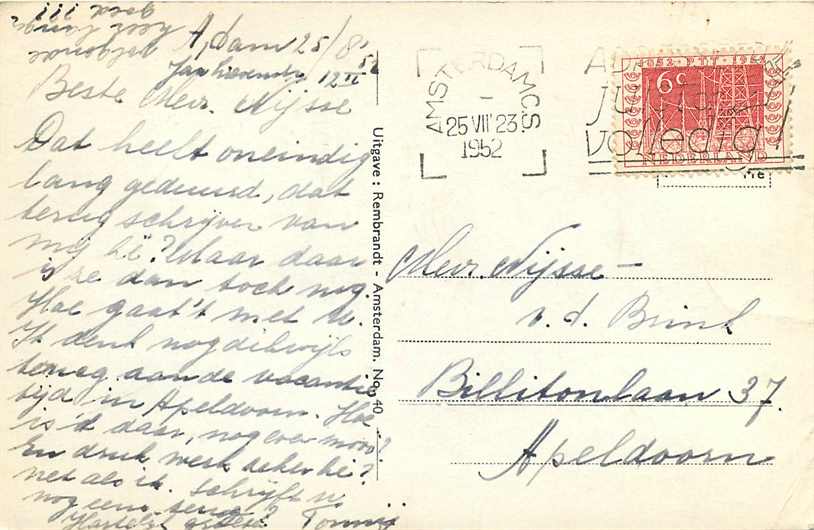 A'dam 25/8 '52
Beste Mevr. Nijsse
Dat heeft oneindig
lang geduurd, dat
terug schrijven van
mij hè? Maar daar
is ze dan toch nog.
Hoe gaat't met U.
Ik denk nog dikwijls
terug aan de vacantie
tijd in Apeldoorn. Hoe
is 't daar, nog even mooi?
En druk werk zeker hè?
net als ik. Schrijft U
nog eens terug?
Hartelijk Tonny
Uitgave : Rembrandt - Amsterdam. No. 40
AMSTERDAM C.S
25 VII 23
1952
volledig
1852 · PTT · 1952
6c
NEDERLAND
Mevr. Nijsse -
v. d. Brink
Billitonlaan 37.
Apeldoorn